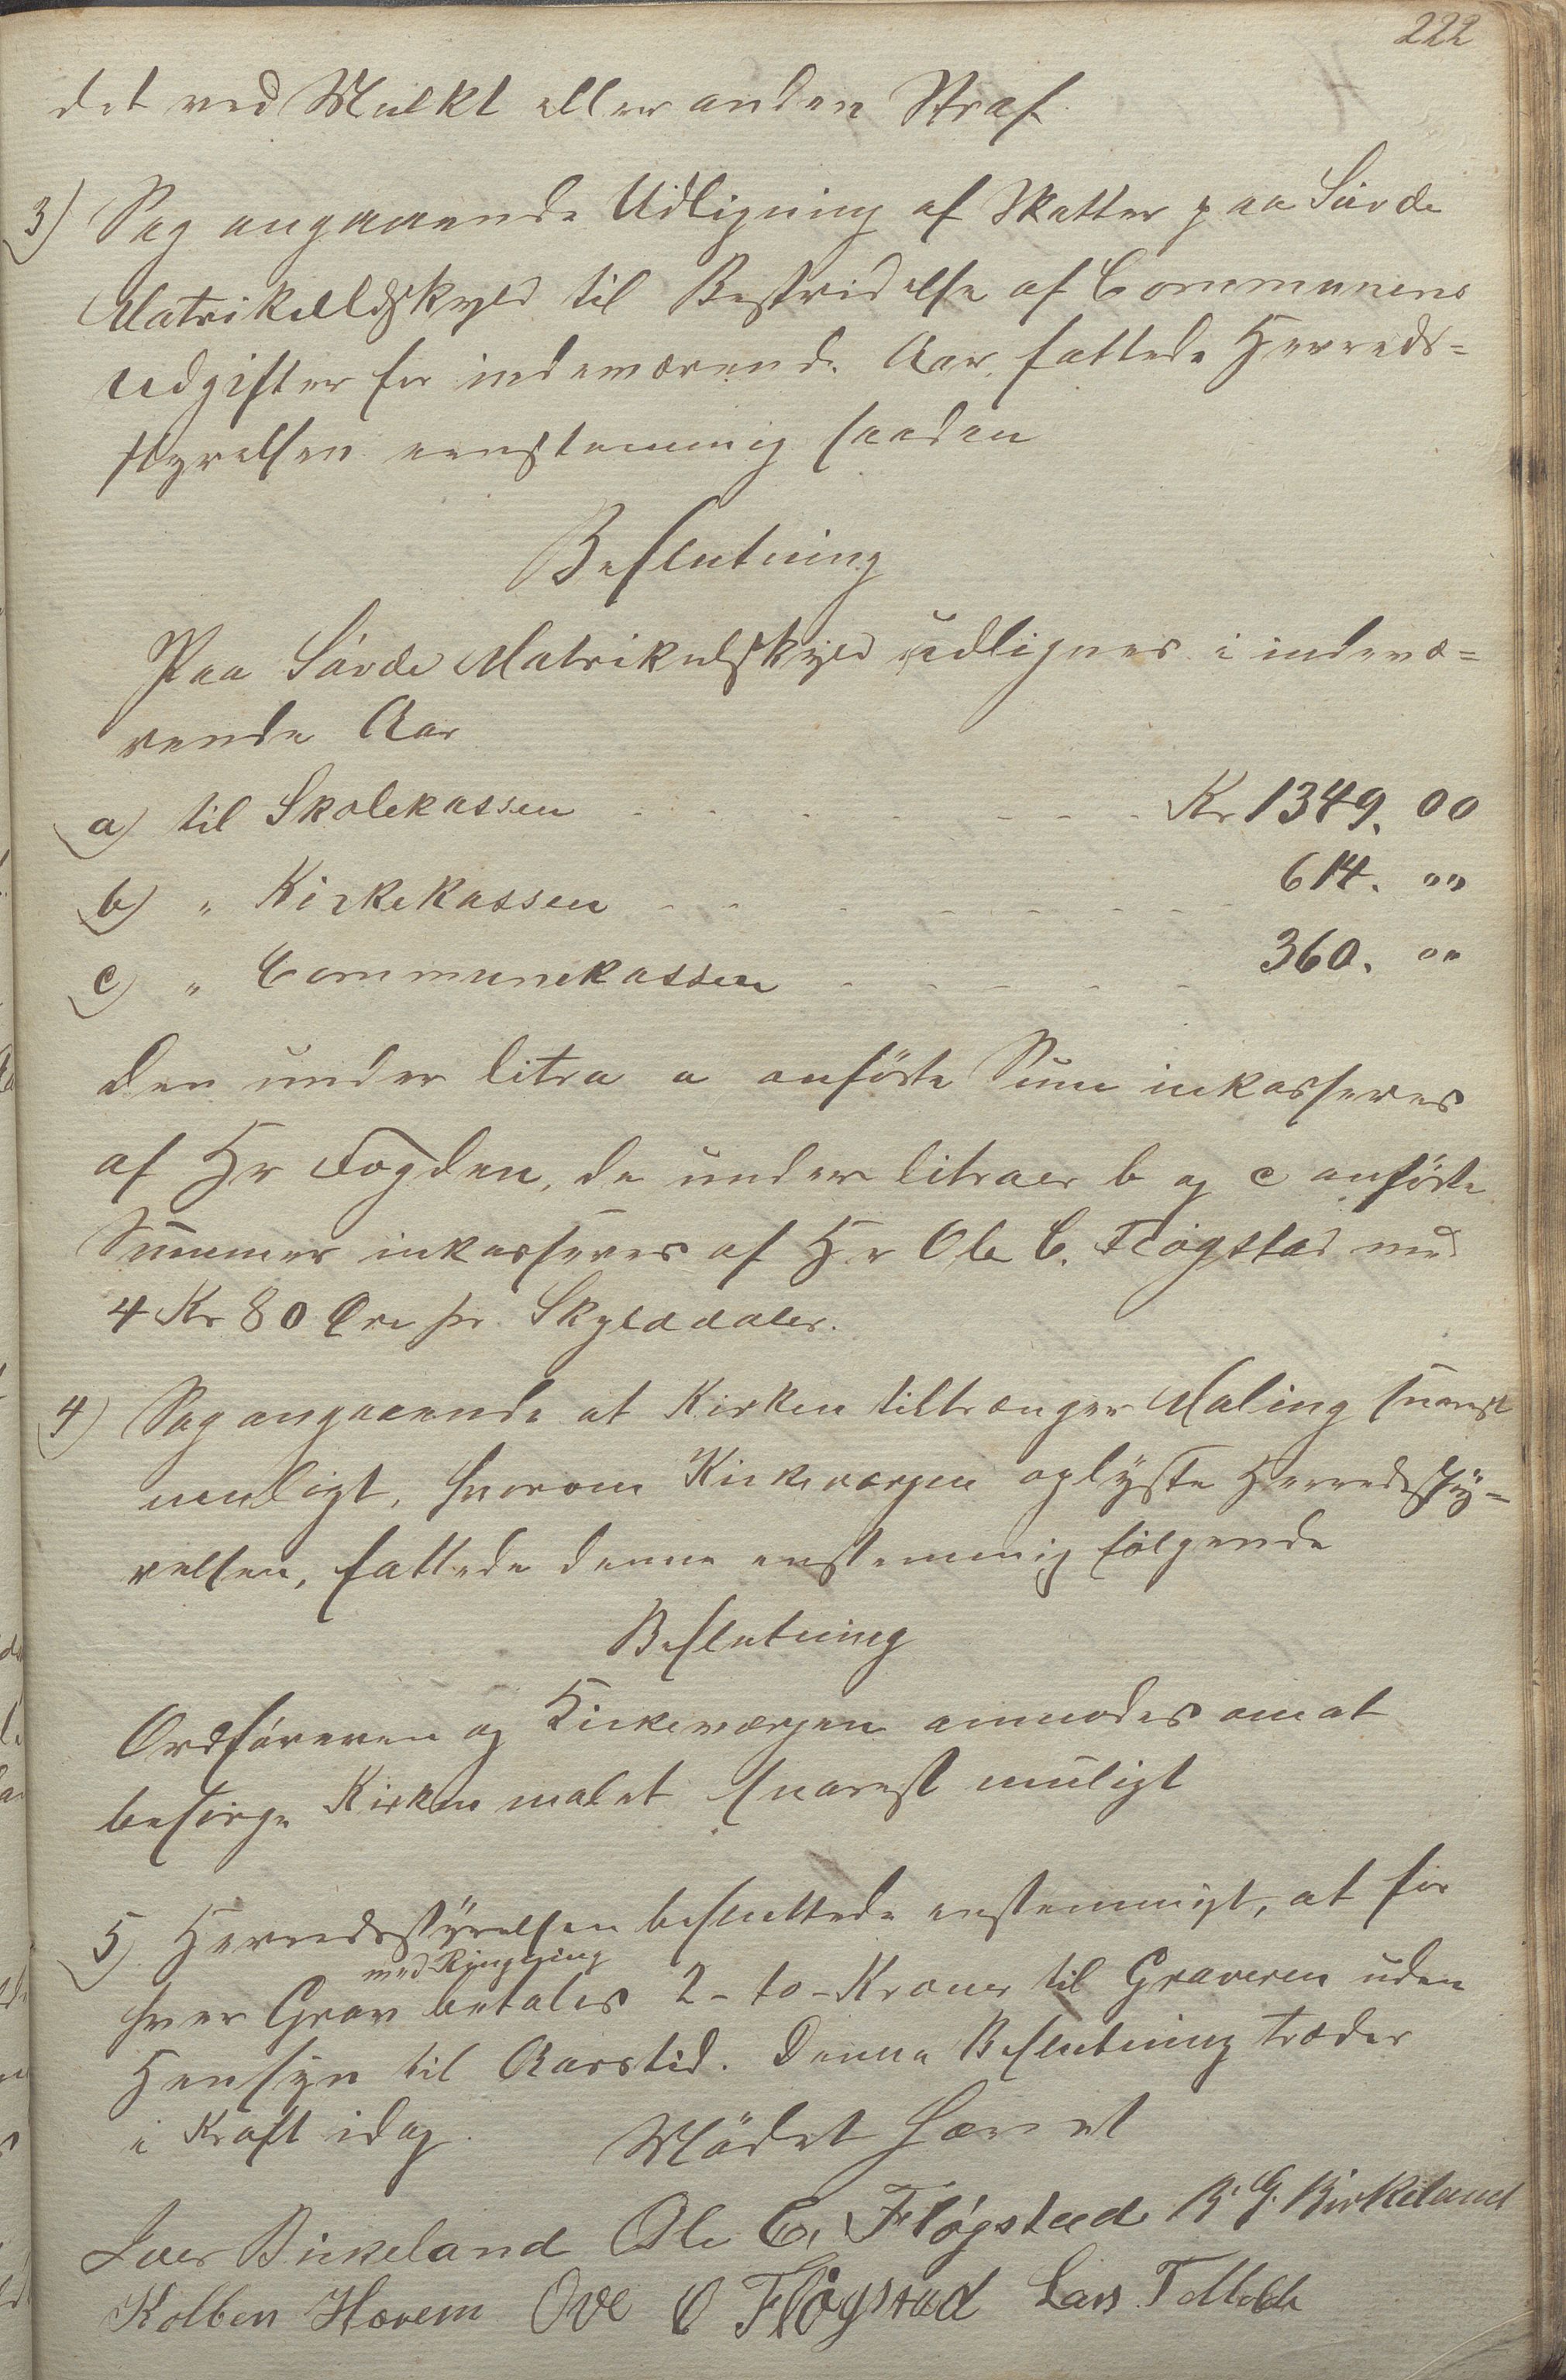 222
det ved Mulkt eller anden Straf
3) Sag angaaende Udligning af Skatter paa Søvde
Matrikullskyld til Bestridelse af Communens
Udgifter for indeværende Aar, fattede Herreds=
styrelsen eenstemmig saadan
Beslutning
Paa Søvde Matrikulskyld udlignes i indevæ=
rende Aar
a) til Skolekassen - - - - - - - - Kr 1349. 00
b) " Kirkekassen - - - - - - - - 614. ""
c) " Communekassen - - - - - 360. ""
Den under litra a anførte Sum inkasseres
af Hr Fogden, de under litraer b og c anførte
Summer inkasseres af Hr Ole C. Fløgstad med
4 Kr 80 Øre pr. Skylddaler.
4) Sag angaaende at Kirken tiltrænger Maling snarest
muligt, hvorom Kirkeværgen oplyste Herredssty=
relsen, fattede denne enstemmig følgende
Beslutning
Ordføreren og Kirkeværgen anmodes om at
besørge Kirken malet snarest muligt
5) Herredsstyrelsen besluttede enstemmigt, at for
med Ringning
hver Grav betales 2 - to - Kroner til Graveren uden
Hensyn til Aarstid. Denne Beslutning træder
i Kraft idag. Mødet hævet
Iver Birkeland Ole C. Fløgstad B. G. Birkeland
Kolben Havem Ove O Fløgstad Lars